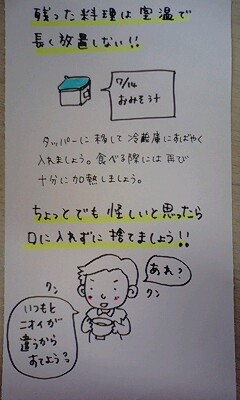 残った料理は室温で
長く放置しない!!
7/14
おみそ汁
タッパーに移して冷蔵庫にすばやく
入れましょう。食べる際には再び
十分に加熱しましょう。
ちょっとでも怪しいと思ったら
口に入れずに捨てましょう!!
あれ?
クン
クン
いつもと
ニオイが
違うから
すてよう??